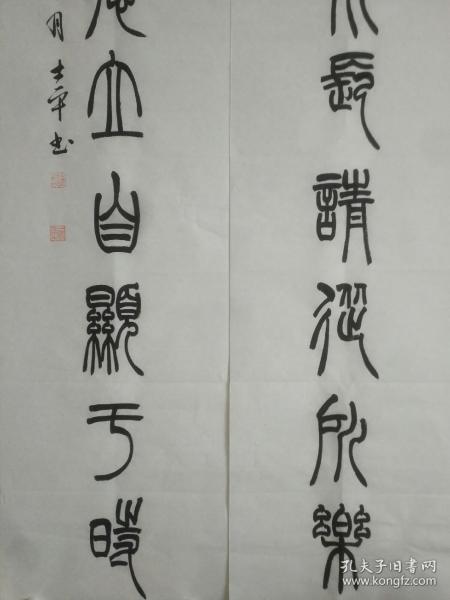 長請從所樂
立自顯于時
月士平书
孔夫子旧书网
www.kongfz.com